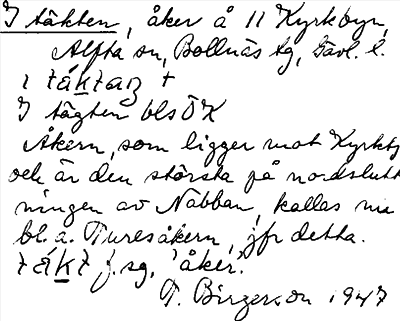 I täkten, åker å 11 Kyrkbyn,
Alfta sn, Bollnäs tg, Gävl. l.
I tägten bls ÖK
Åkern, som ligger mot Kyrkb
och är den största på nordslutt
ningen av Nabban, kallas nu
bl.a. Turesåkern, jfr detta.
f. sg, 'åker'.
T. Birgerson 1947